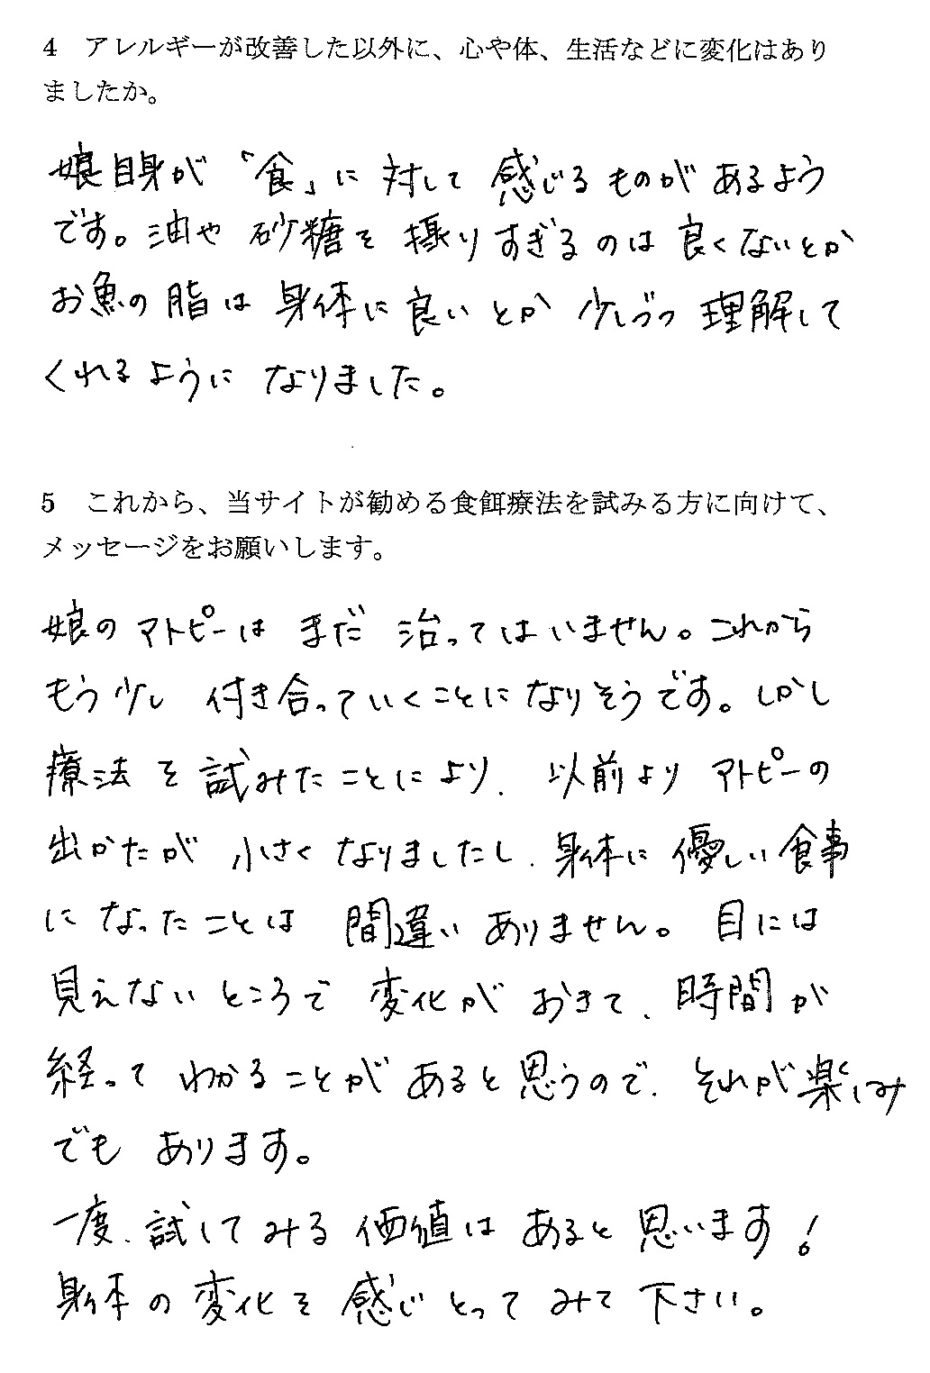 4　アレルギーが改善した以外に、心や体、生活などに変化はあり
ましたか。
娘自身が「食」に対して感じるものがあるよう
です。油や砂糖を摂りすぎるのは良くないとか
お魚の脂は身体に良いとか少しづつ理解して
くれるようになりました。
5　これから、当サイトが勧める食餌療法を試みる方に向けて、
メッセージをお願いします。
娘のアトピーはまだ治ってはいません。これから
もう少し付き合っていくことになりそうです。しかし
療法を試みたことにより、以前よりアトピーの
出かたが小さくなりましたし、身体に優しい食事
になったことは間違いありません。目には
見えないところで変化がおきて、時間が
経ってわかることがあると思うので、それが楽しみ
でもあります。
一度、試してみる価値はあると思います!
身体の変化を感じとってみて下さい。